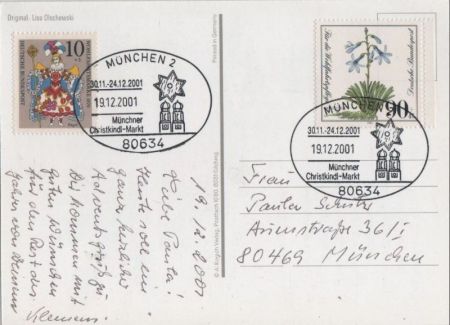 Original: Lisa Olschewski
Printed in Germany
10
DEUTSCHE BUNDESPOST
MÜNCHEN 2
30.11.-24.12.2001
19.12.2001
Münchner
Christkindl-Markt
80634
Für die Wohlfahrtspflege
Deutsche Bundespost
90
MÜNCHEN
30.11.-24.12.2001
19.12.2001
Münchner
Christkindl-Markt
80634
19.12.2001
Liebe Paula!
Heute soll ein
ganz herzlicher
Adventsgruß zu
Dir kommen mit
guten Wünschen
für den Rest des
Jahres von Deinem
Klemens.
Frau
Paula
36/I
80469 München